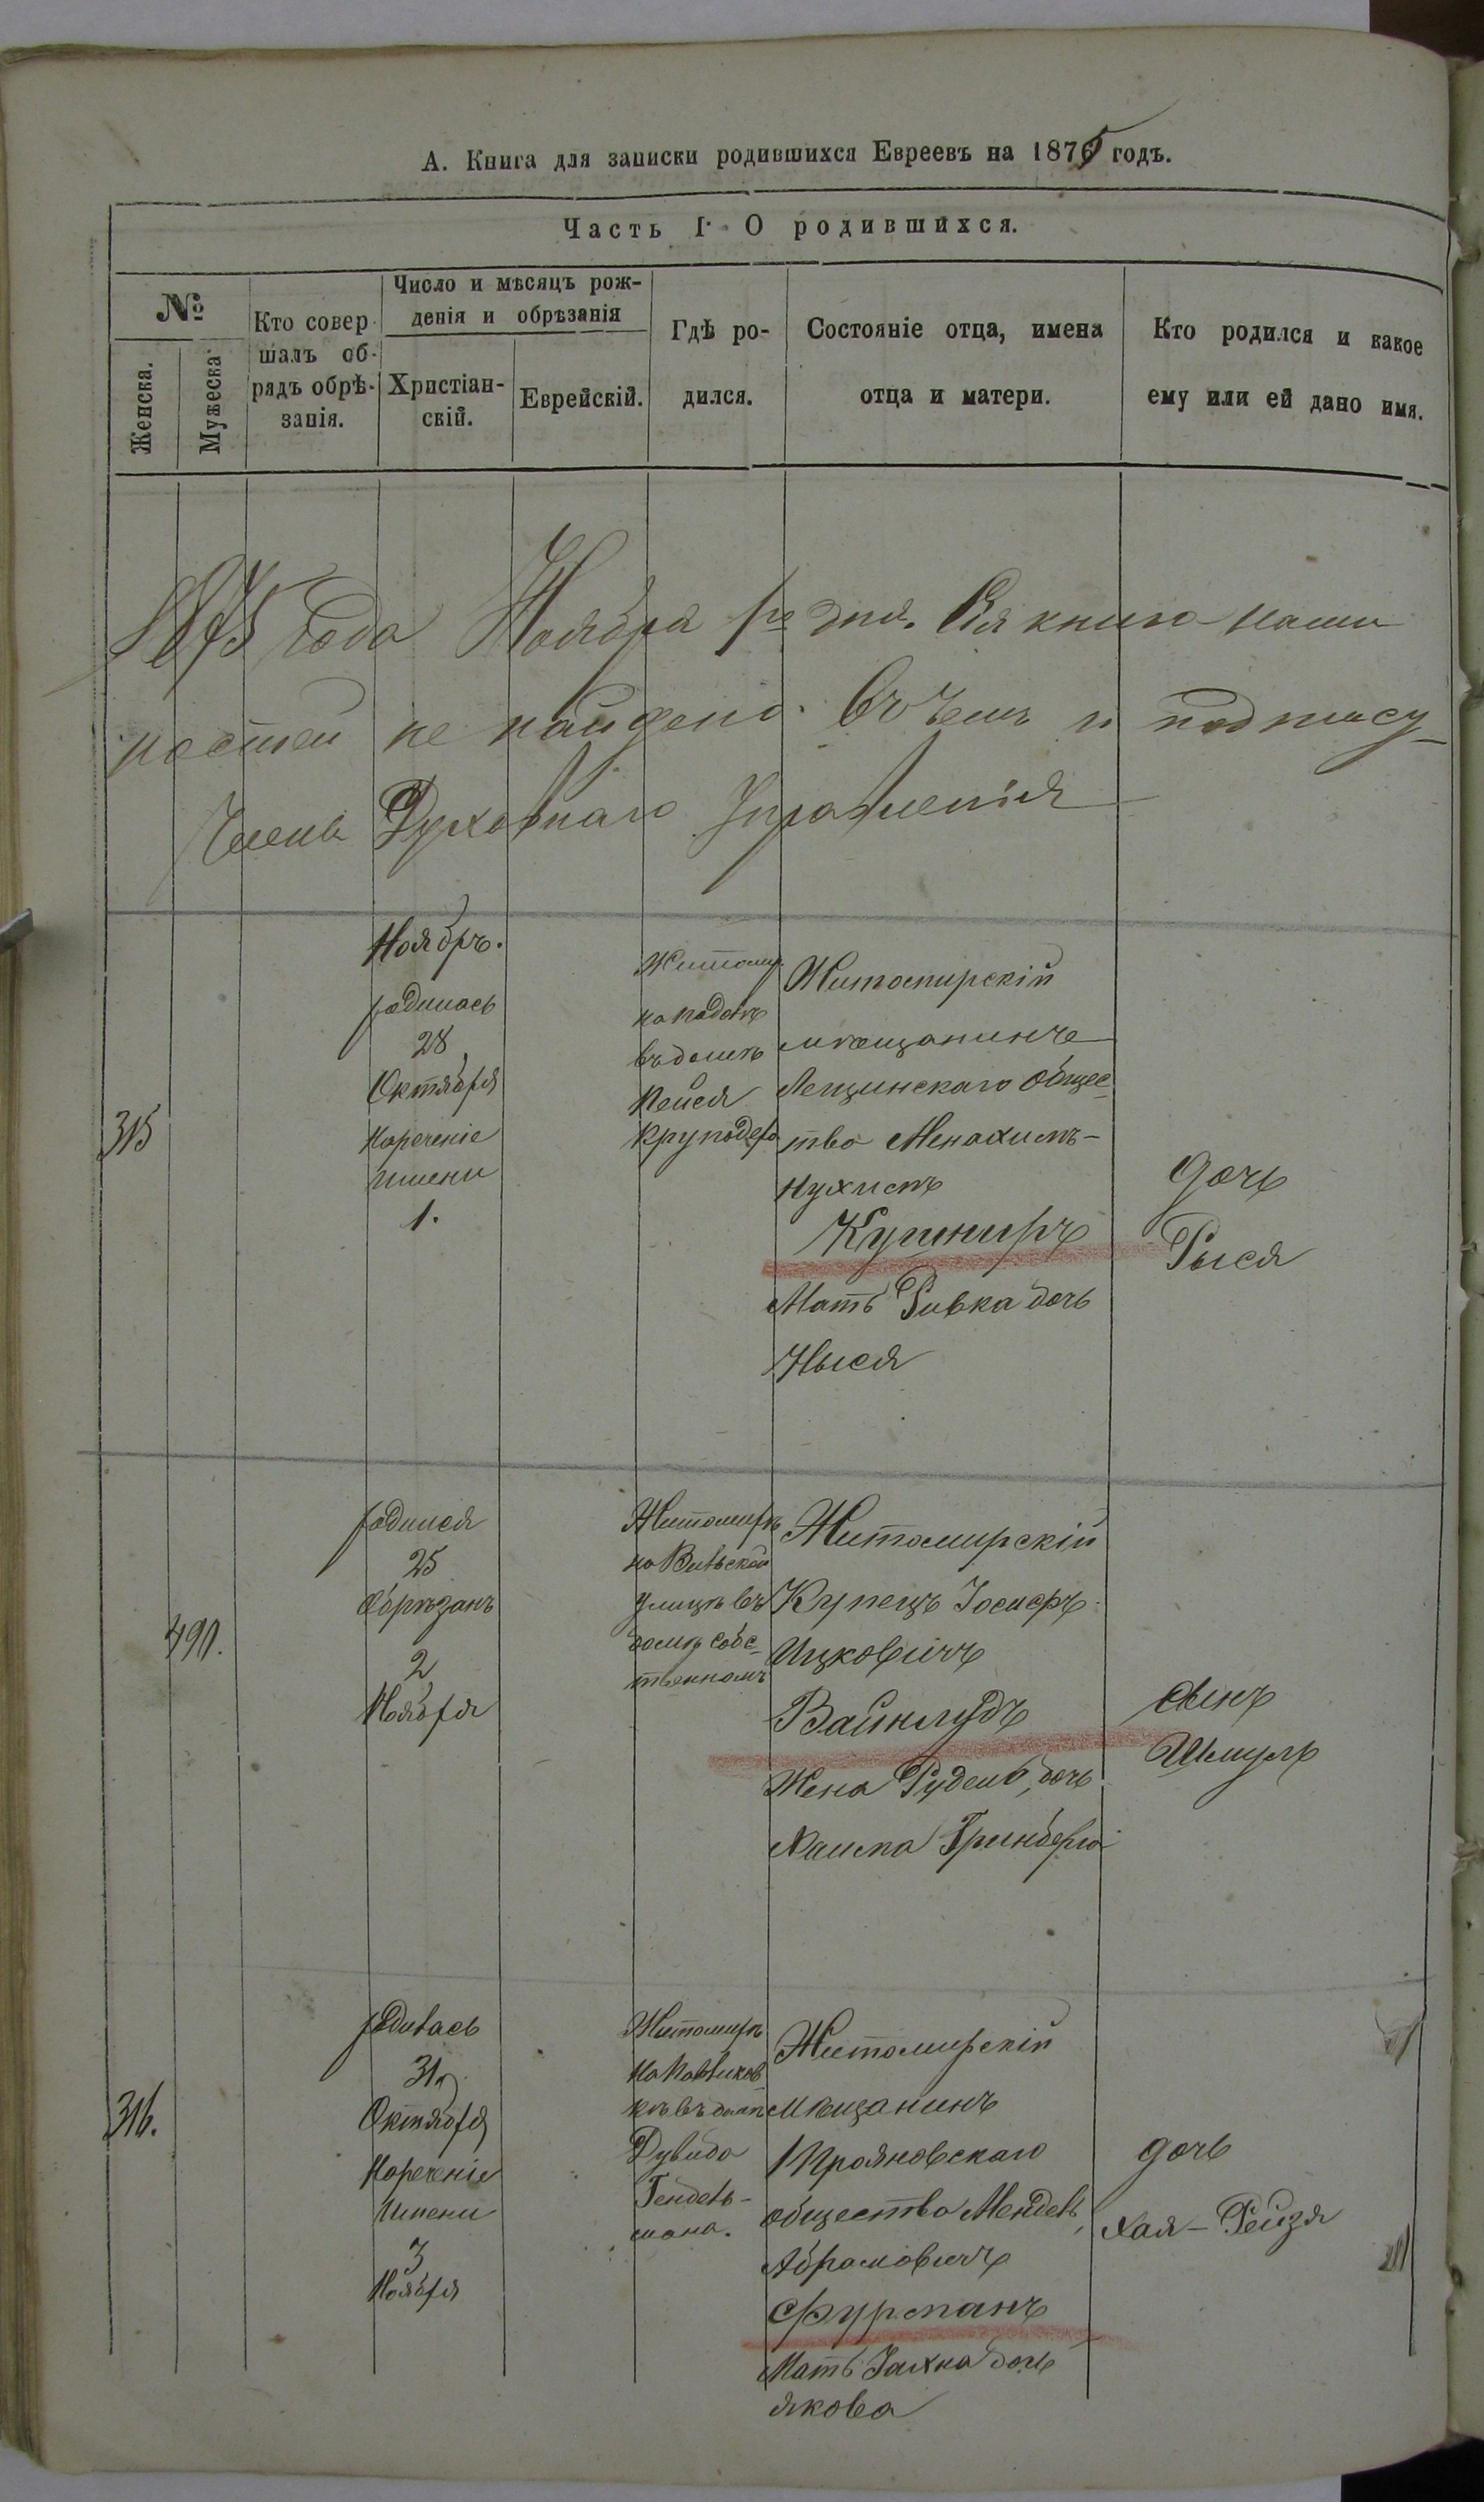 А. Книга для записки родившихся Евреевъ на 1875 годъ.
Часть I. О родившихся.
№
Женска.
Мужеска
Кто совер-
шалъ об-
рядъ обрѣ-
занія.
Число и мѣсяцъ рож-
денія и обрѣзанія
Христіан-
скій.
Еврейскій.
Гдѣ ро-
дился.
Состояніе отца, имена
отца и матери.
Кто родился и какое
ему или ей дано имя.
1875 года Ноября 1го дня. Сія книга
ностей не найдено. Въ чемъ и подпису-
Членъ Духовнаго Управленія
Ноябрь.
315
родилась
28
Октября
Нареченіе
Имени
1.
Житомир
въ домѣ
Пейся
Житомирскій
мѣщанинъ
Лещинскаго общес-
тва Менахимъ-
Нухимъ
Кушниръ
Мать Ривка дочь
Ныся
дочь
Рыся
490.
родился
25
Обрѣзанъ
2
Ноября
Житомирѣ
на Вильской
улицѣ въ
домѣ собс-
твенномъ
Житомирскій
Купецъ Іосифъ
Ицковичъ
Вайнлудъ
Жена Рудель, дочь
Хаима Гринберга
сынъ
Шмуль
316.
родилась
31го
Октября
Нареченіе
Имени
3
Ноября
Житомирѣ
на Павликов-
кѣ въ домѣ
Дувида
Гендель-
мана.
Житомирскій
мѣщанинъ
Трояновскаго
общества Мендель
Абрамовичъ
Фурманъ
Мать дочь
Якова
дочь
Хая-Рейзя